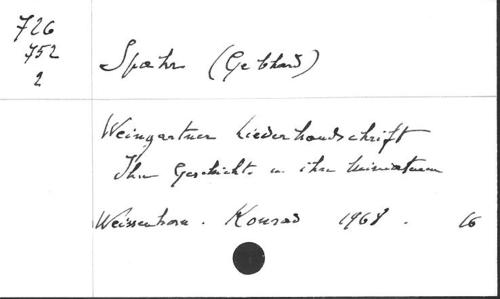 726
752
2
Spahr (Gebhard)
Weingartner Liederhandschrift
Ihre Geschichte u ihre Miniaturen
Weissenhorn . Konrad 1968 . 16